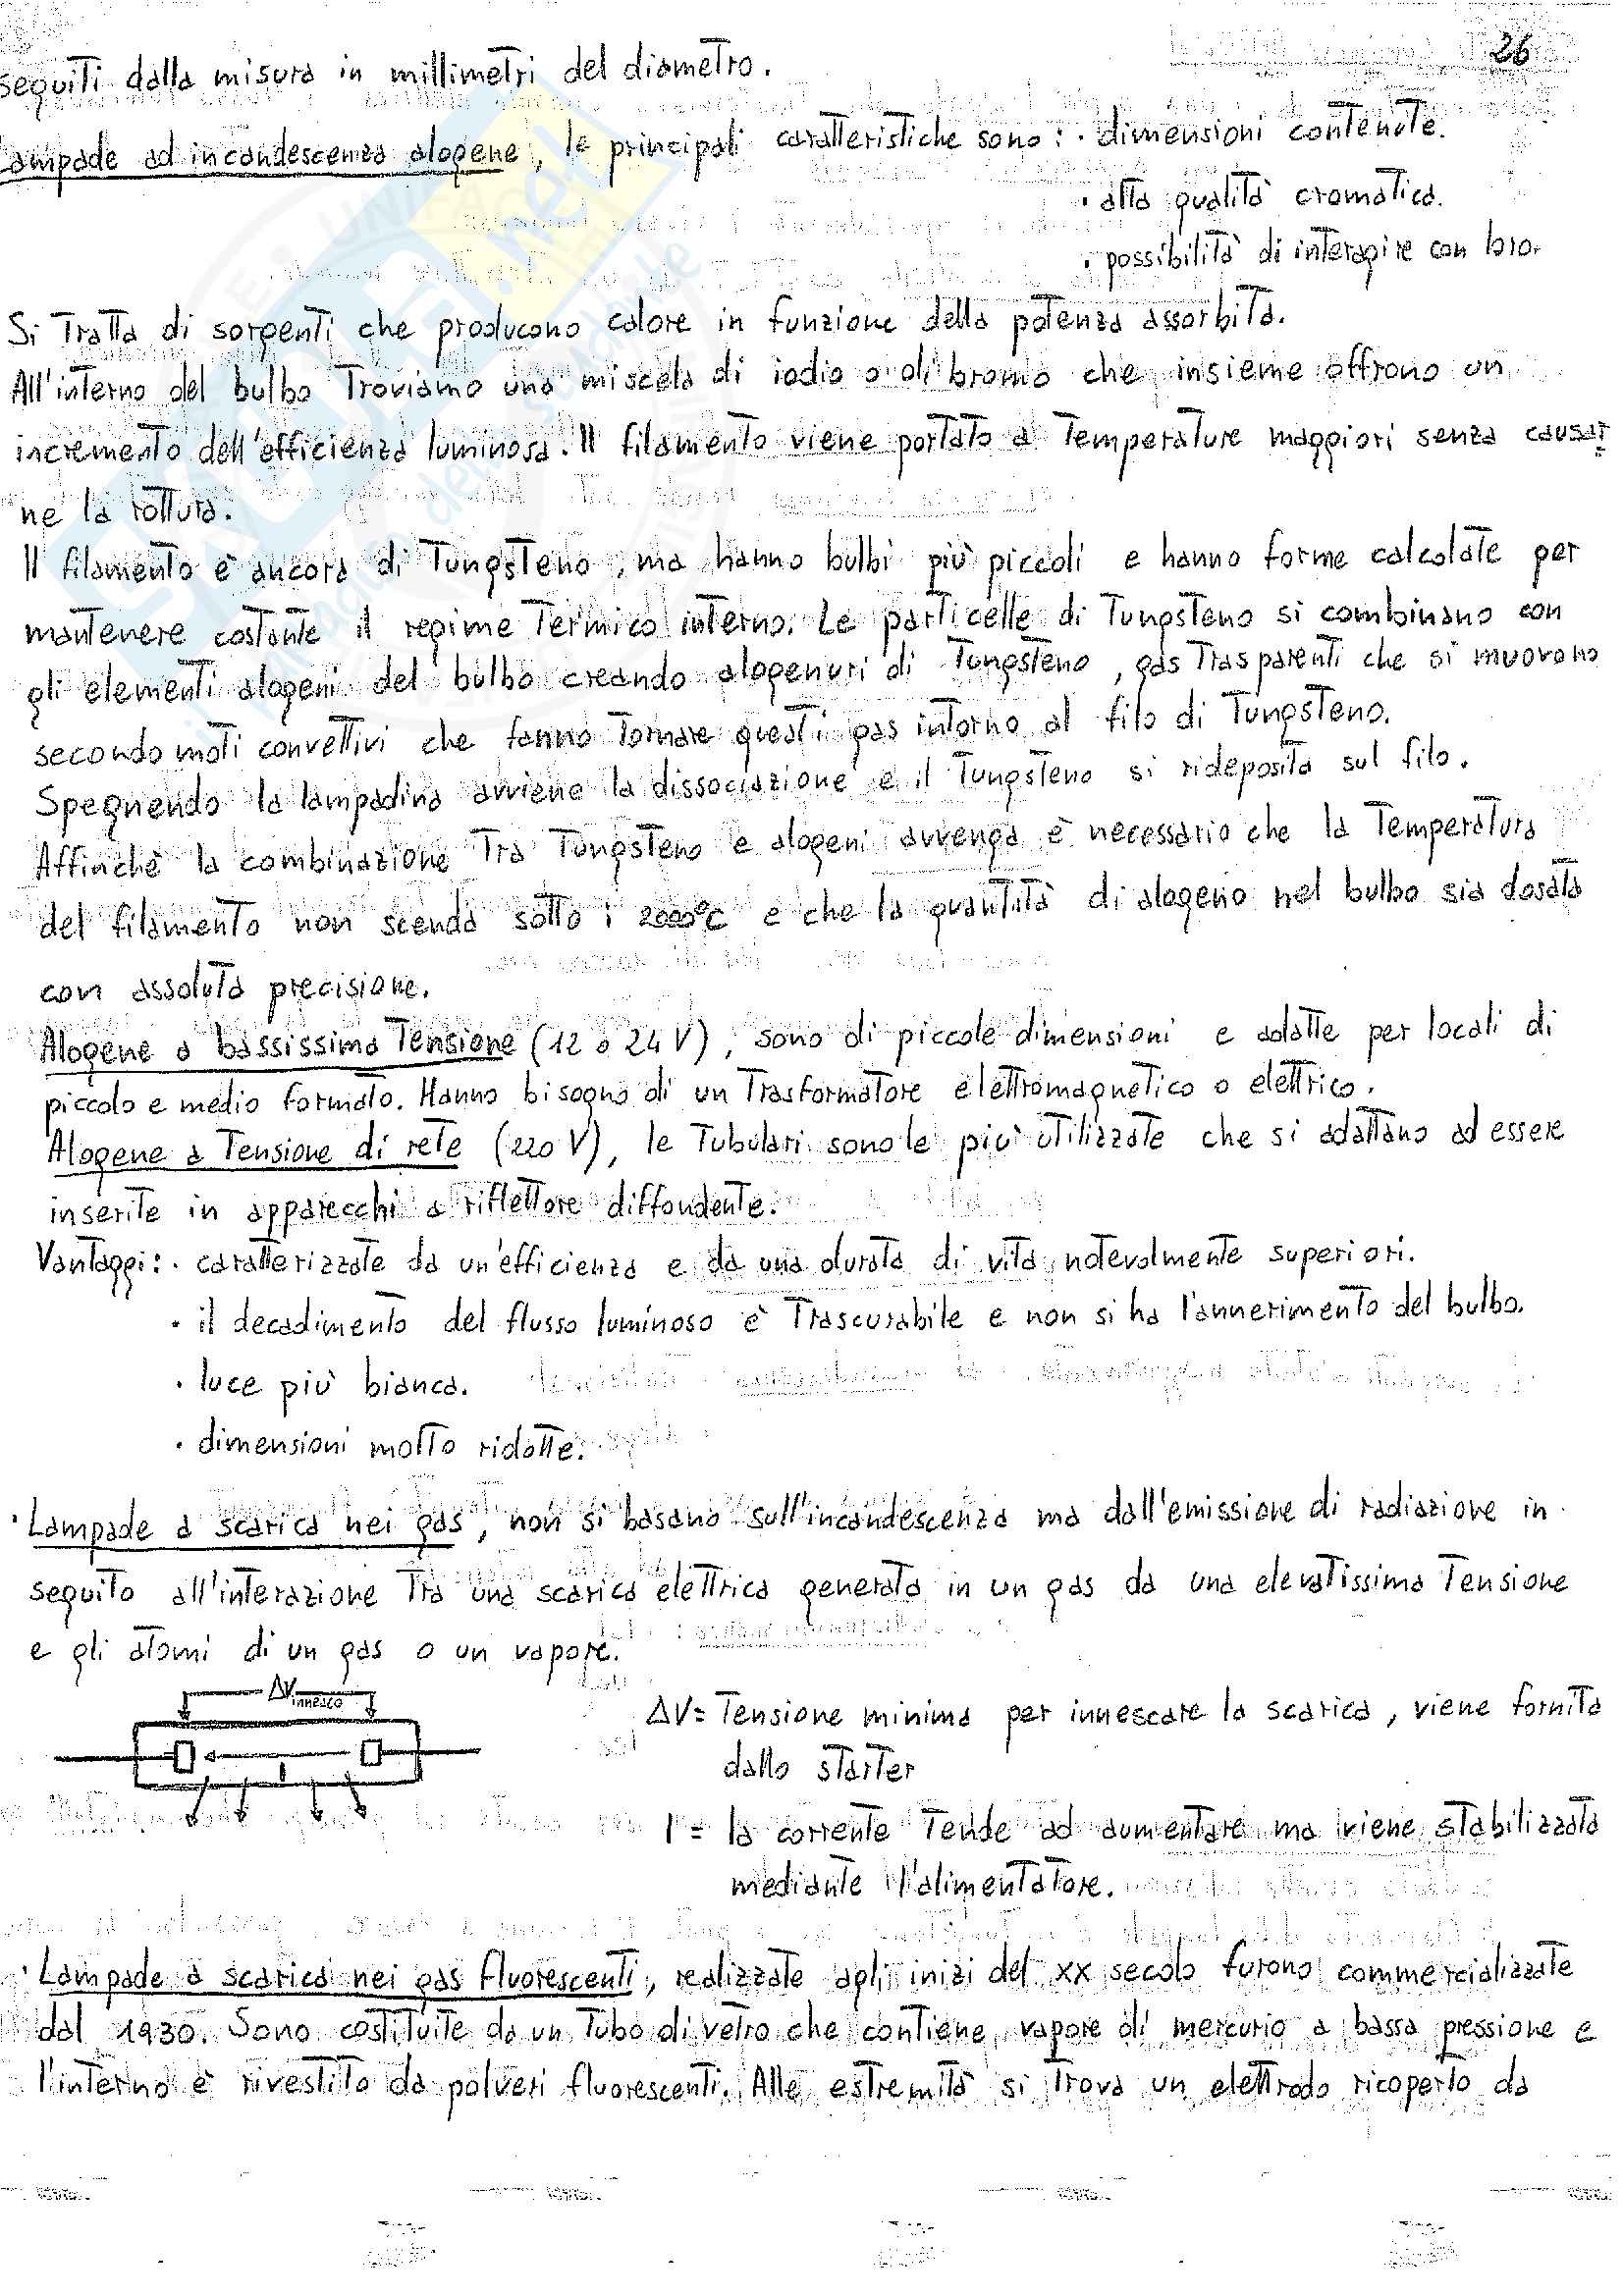 26
seguiti dalla misura in millimetri del diametro.
Lampade ad incandescenza alogene, le principali caratteristiche sono: · dimensioni contenute.
· alta qualità cromatica.
· possibilità di interagire con loro.
Si tratta di sorgenti che producono calore in funzione della potenza assorbita.
All'interno del bulbo troviamo una miscela di iodio o di bromo che insieme offrono un
incremento dell'efficienza luminosa. Il filamento viene portato a temperature maggiori senza causar
ne la rottura.
Il filamento è ancora di tungsteno, ma hanno bulbi più piccoli e hanno forme calcolate per
mantenere costante il regime termico interno. Le particelle di tungsteno si combinano con
gli elementi alogeni del bulbo creando alogenuri di tungsteno, gas trasparenti che si muovono
secondo moti convettivi che fanno tornare questi gas intorno al filo di tungsteno.
Spegnendo la lampadina avviene la dissociazione e il tungsteno si rideposita sul filo.
Affinchè la combinazione tra tungsteno e alogeni avvenga è necessario che la temperatura
del filamento non scenda sotto i 2000°C e che la quantità di alogeno nel bulbo sia dosata
con assoluta precisione.
Alogene a bassissima tensione (12 o 24 V), sono di piccole dimensioni e adatte per locali di
piccolo e medio formato. Hanno bisogno di un trasformatore elettromagnetico o elettrico.
Alogene a tensione di rete (220 V), le tubulari sono le più utilizzate che si adattano ad essere
inserite in apparecchi a riflettore diffondente.
Vantaggi: · caratterizzate da un'efficienza e da una durata di vita notevolmente superiori.
· il decadimento del flusso luminoso è trascurabile e non si ha l'annerimento del bulbo.
· luce più bianca.
· dimensioni molto ridotte.
· Lampade a scarica nei gas, non si basano sull'incandescenza ma dall'emissione di radiazione in
seguito all'interazione tra una scarica elettrica generata in un gas da una elevatissima tensione
e gli atomi di un gas o un vapore.
ΔV innesco
I
ΔV= tensione minima per innescare la scarica, viene fornita
dallo starter
I = la corrente tende ad aumentare ma viene stabilizzata
mediante l'alimentatore.
· Lampade a scarica nei gas fluorescenti, realizzate agli inizi del XX secolo furono commercializzate
dal 1930. Sono costituite da un tubo di vetro che contiene vapore di mercurio a bassa pressione e
l'interno è rivestito da polveri fluorescenti. Alle estremità si trova un elettrodo ricoperto da